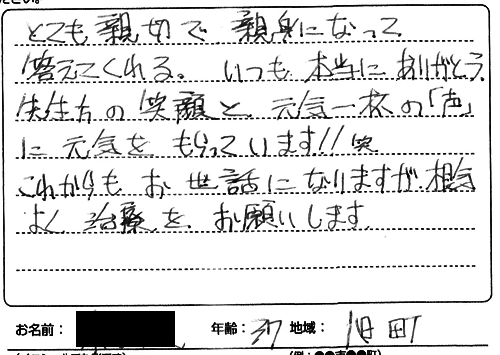 とても親切で、親身になって
答えてくれる。いつも本当にありがとう。
先生方の笑顔と、元気一杯の「声」
に元気をもらっています!!笑
これからもお世話になりますが根気
よく治療をお願いします。
お名前： 年齢：37 地域：旧町